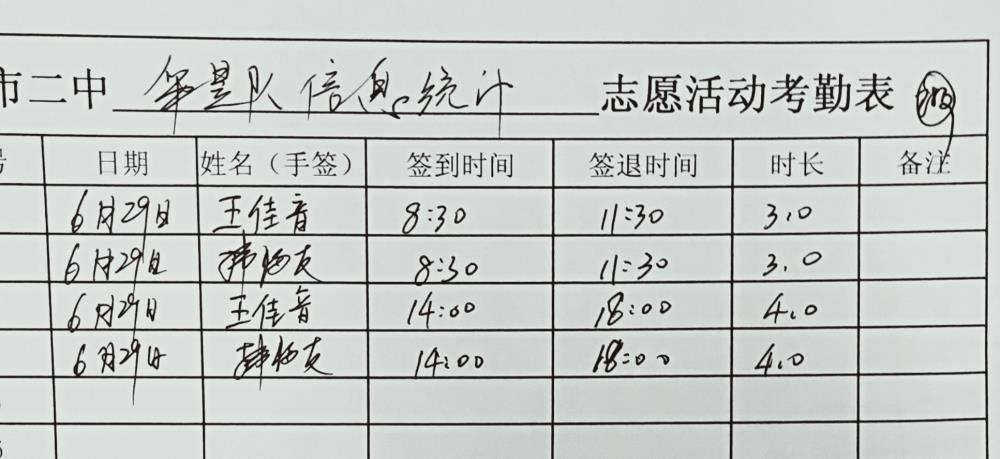 市二中 星队信息统计 志愿活动考勤表
号 日期 姓名（手签） 签到时间 签退时间 时长 备注
6月29日 王佳音 8:30 11:30 3.0
6月29日 韩 友 8:30 11:30 3.0
6月29日 王佳音 14:00 18:00 4.0
6月29日 韩 友 14:00 18:00 4.0